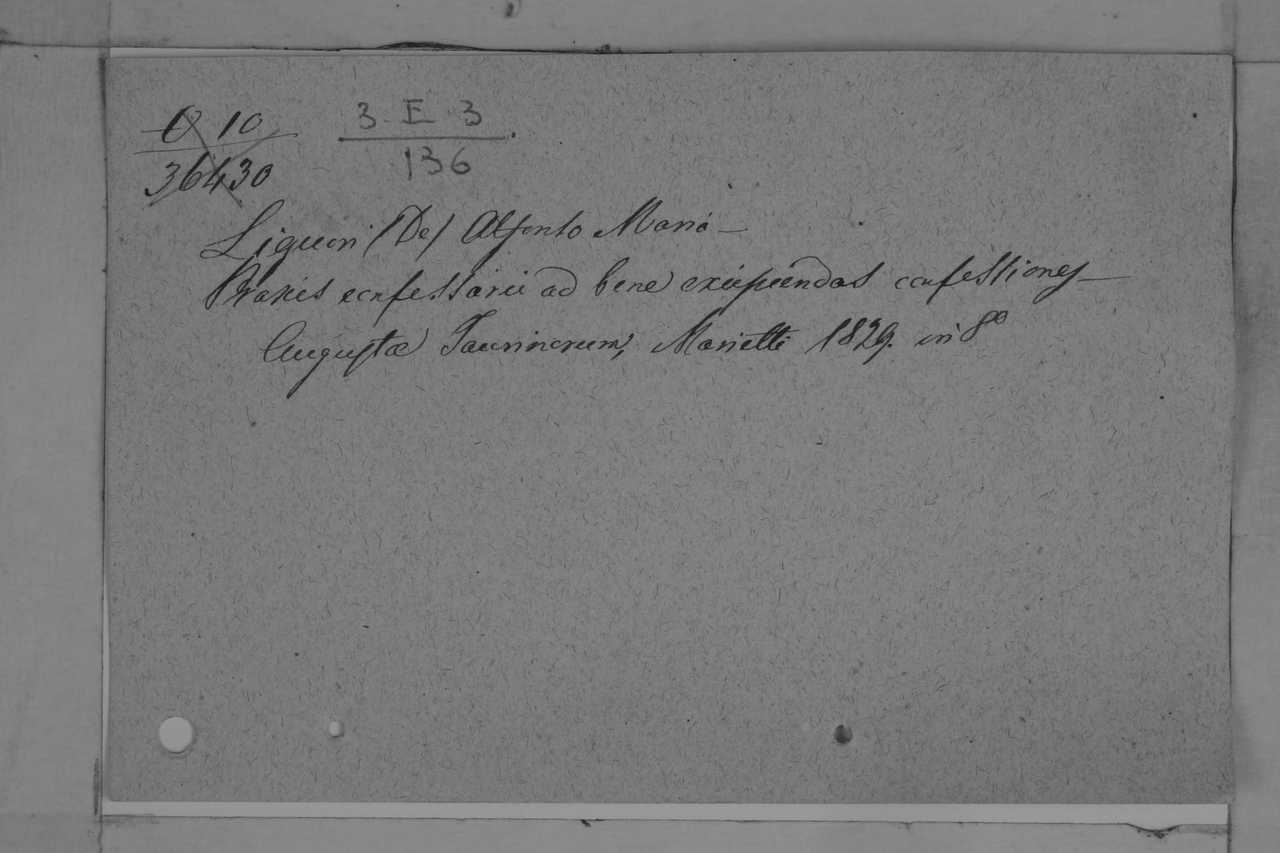 O 10
36430
3. E. 3
136
Liguori (De) Alfonso Maria —
Praxis confessarii ad bene excipiendas confessiones —
Augustæ Taurinorum, Marietti 1829. in 8º